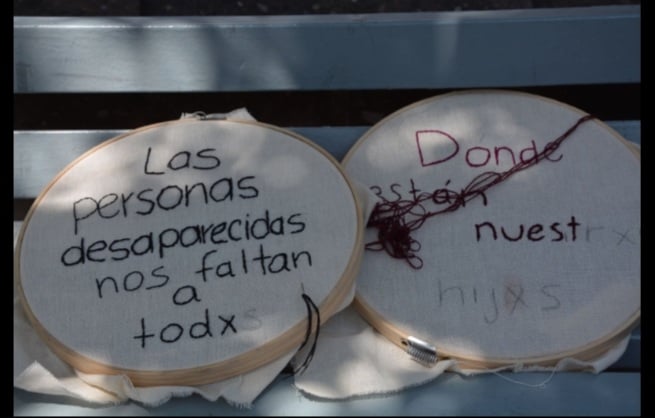 Las
personas
desaparecidas
nos faltan
a
todxs
Donde
están
nuestrx
hijxs